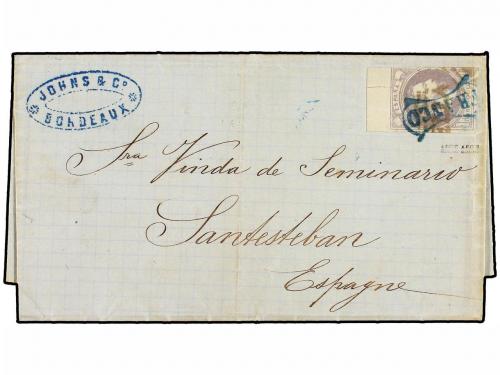 JOHNS & Cº
BORDEAUX
Sra Vinda de Seminario
Santesteban
Espagne